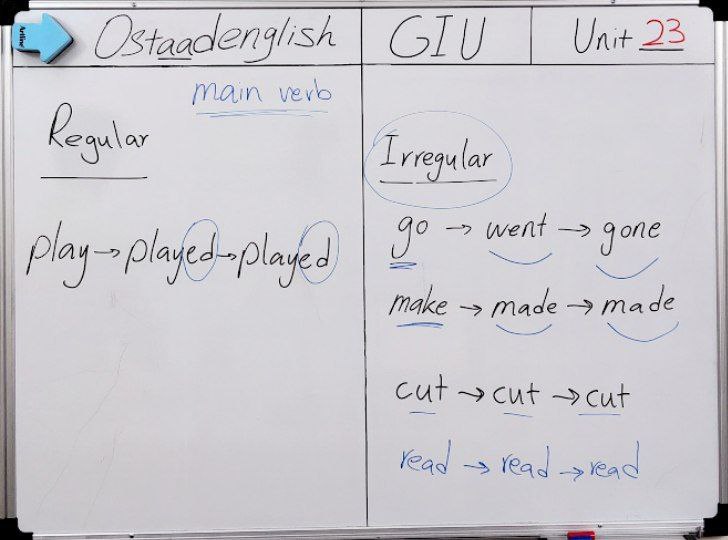 Ostaadenglish
GIU
Unit 23
main verb
Regular
play → played → played
Irregular
go → went → gone
make → made → made
cut → cut → cut
read → read → read